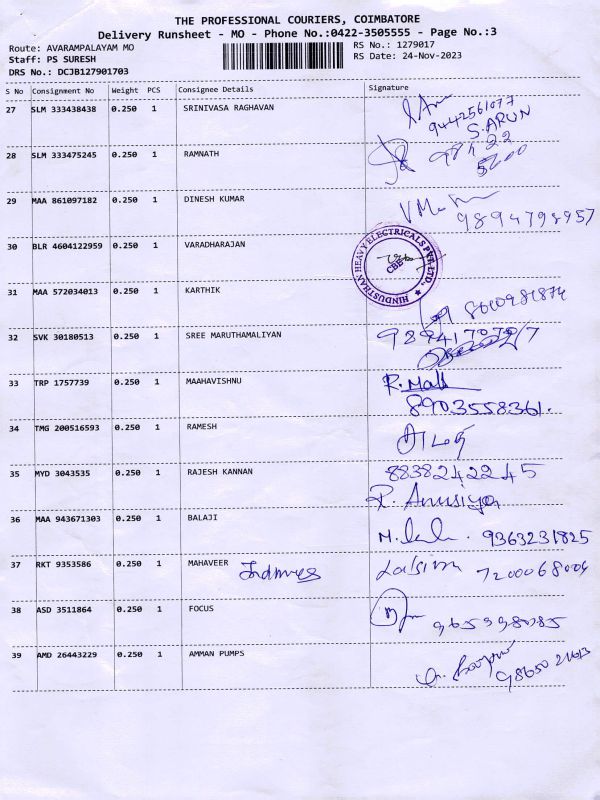 THE PROFESSIONAL COURIERS, COIMBATORE
Delivery Runsheet - MO - Phone No.:0422-3505555 - Page No.:3
Route: AVARAMPALAYAM MO
RS No.: 1279017
Staff: PS SURESH
RS Date: 24-Nov-2023
DRS No.: DCJB127901703
S No Consignment No Weight PCS Consignee Details Signature
27 SLM 333438438 0.250 1 SRINIVASA RAGHAVAN
9442561077
S.ARUN
28 SLM 333475245 0.250 1 RAMNATH
29 MAA 861097182 0.250 1 DINESH KUMAR
9894798957
30 BLR 4604122959 0.250 1 VARADHARAJAN
HINDUSTHAN HEAVY ELECTRICALS PVT. LTD.
CBE
31 MAA 572034013 0.250 1 KARTHIK
32 SVK 30180513 0.250 1 SREE MARUTHAMALIYAN
33 TRP 1757739 0.250 1 MAAHAVISHNU
8903558361.
34 TMG 200516593 0.250 1 RAMESH
35 MYD 3043535 0.250 1 RAJESH KANNAN
8838242245
P. Anusiya
36 MAA 943671303 0.250 1 BALAJI
9363231825
37 RKT 9353586 0.250 1 MAHAVEER
7200068004
38 ASD 3511864 0.250 1 FOCUS
39 AMD 26443229 0.250 1 AMMAN PUMPS